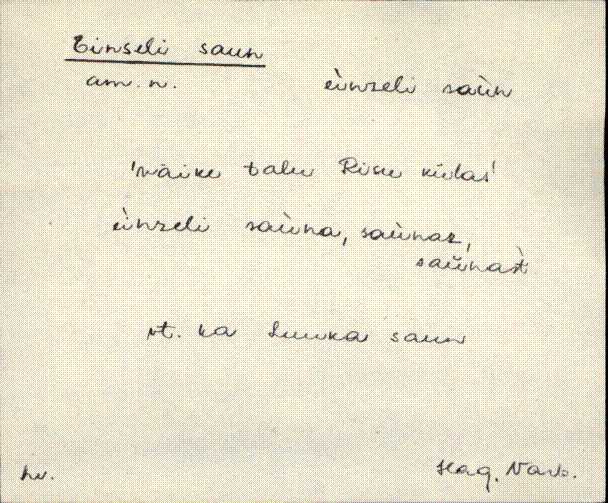 Einseli saun
am. n. èinseli saùn
'väike talu Risu külas'
èinseli saùna, saùnaz,
saùnast
vt. ka saun
hv. Hag.